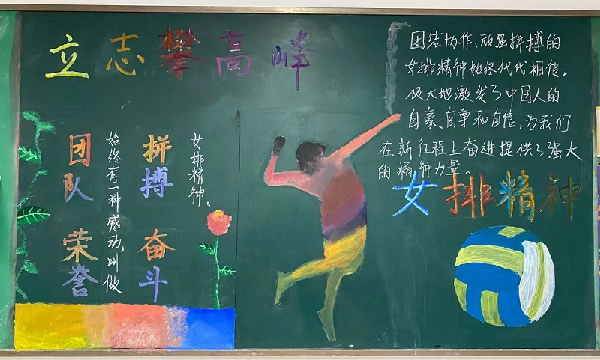 立志攀高峰
团结协作、顽强拼搏的
女排精神始终代代相传。
极大地激发了中国人的
自豪、自尊和自信，为我们
在新征程上奋进提供了强大
的精神力量。
女排精神
女排精神。
拼搏 奋斗
始终有一种感动，叫做
团队 荣誉